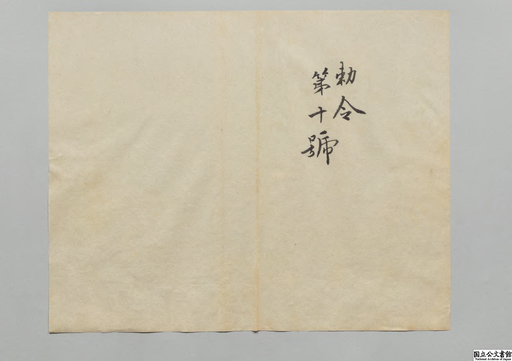 勅令
第十號
国立公文書館
National Archives of Japan